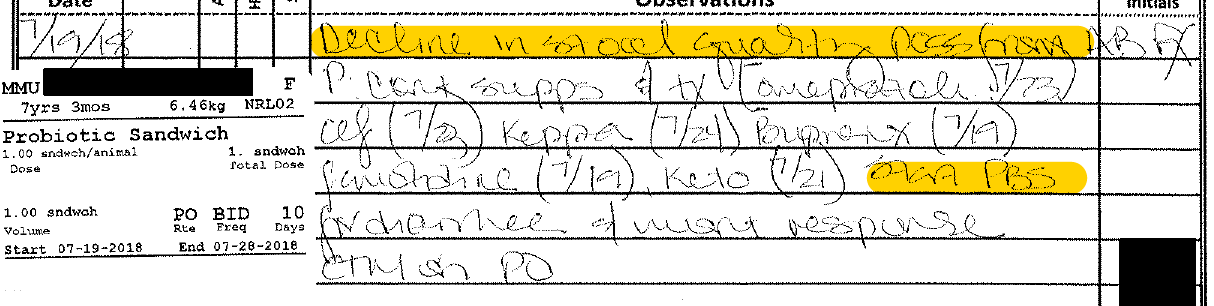 Date Observations Initials
7/19/18 Decline in stool quality poss from AB tx
MMU F
7yrs 3mos 6.46kg NRL02
Probiotic Sandwich
1.00 sndwch/animal 1. sndwch
Dose Total Dose
1.00 sndwch PO BID 10
Volume Rte Freq Days
Start 07-19-2018 End 07-28-2018
P. Cont supps & tx (omeprazole 7/23)
cef (7/23) Keppra (7/21) Buprenex (7/19)
famotidine (7/19), Keto (7/21) start PBS
for diarrhea & monitor response
CTM on PO